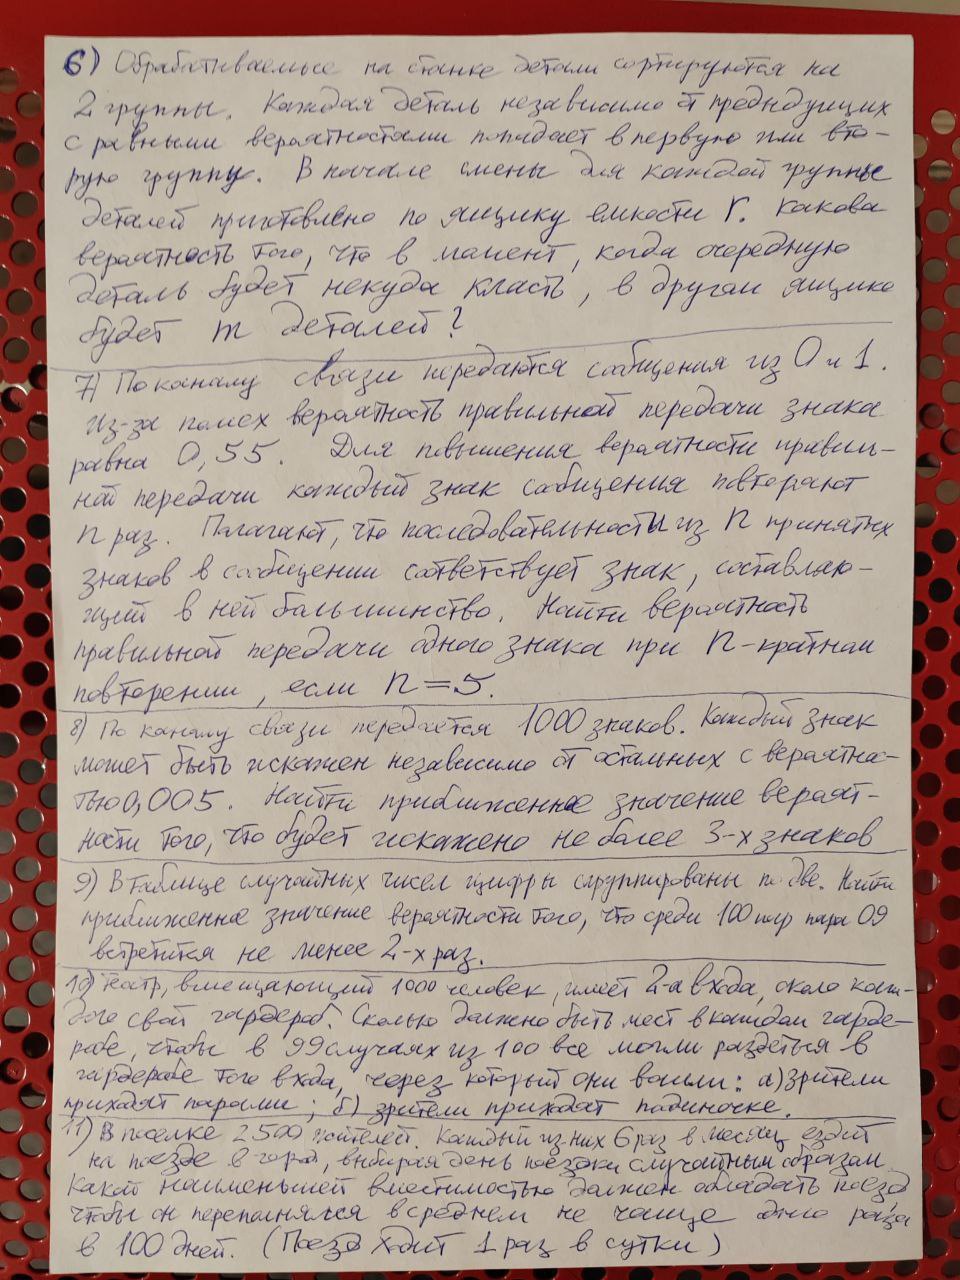 6) Обрабатываемые на станке детали сортируются на
2 группы. Каждая деталь независимо от предыдущих
с равными вероятностями попадает в первую или вто-
рую группу. В начале смены для каждой группы
деталей приготовлено по ящику емкости r. Какова
вероятность того, что в момент, когда очередную
деталь будет некуда класть, в другом ящике
будет m деталей?
7) По каналу связи передаются сообщения из 0 и 1.
Из-за помех вероятность правильной передачи знака
равна 0,55. Для повышения вероятности правиль-
ной передачи каждый знак сообщения повторяют
n раз. Полагают, что последовательности из n принятых
знаков в сообщении соответствует знак, составляю-
щий в ней большинство. Найти вероятность
правильной передачи одного знака при n-кратном
повторении, если n=5.
8) По каналу связи передается 1000 знаков. Каждый знак
может быть искажен независимо от остальных с вероятно-
тью 0,005. Найти приближенное значение вероят-
ности того, что будет искажено не более 3-х знаков
9) В таблице случайных чисел цифры сгруппированы по две. Найти
приближенное значение вероятности того, что среди 100 пар пара 09
встретится не менее 2-х раз.
10) Театр, вмещающий 1000 человек, имеет 2-а входа, около каж-
дого свой гардероб. Сколько должно быть мест в каждом гарде-
робе, чтобы в 99 случаях из 100 все могли раздеться в
гардеробе того входа, через который они вошли: а) зрители
приходят парами; б) зрители приходят поодиночке.
11) В поселке 2500 жителей. Каждый из них 6 раз в месяц ездит
на поезде в город, выбирая день поездки случайным образом.
Какой наименьшей вместимостью должен обладать поезд
чтобы он переполнялся в среднем не чаще одно раза
в 100 дней. (Поезд ходит 1 раз в сутки)